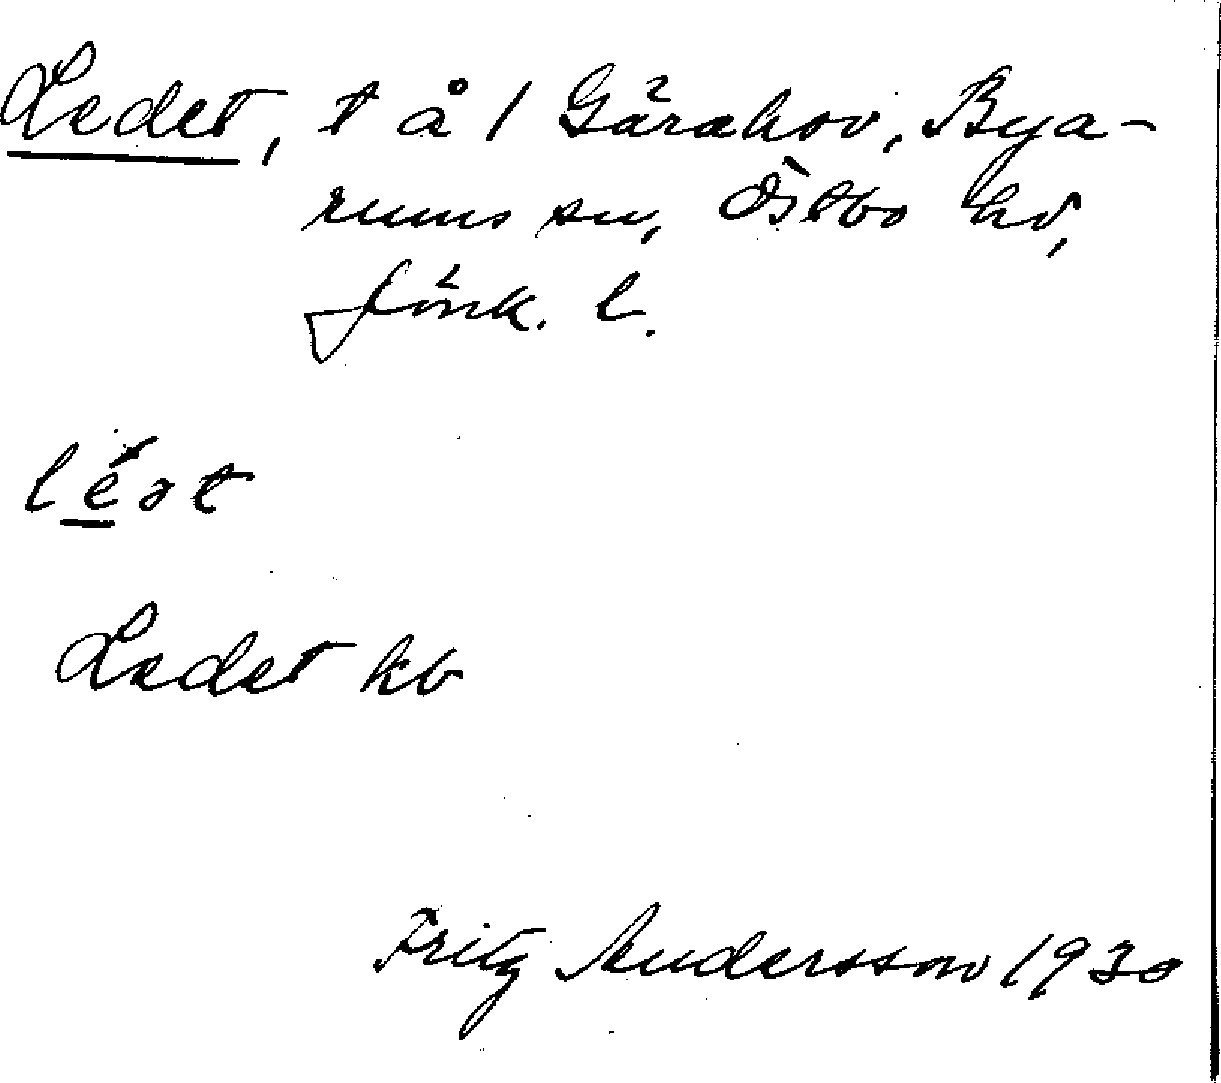 Ledet, t å 1 Gärahov, Bya-
rums sn, Östbo hd,
Jönk. l.
léət
Ledet kb
Fritz Andersson 1930